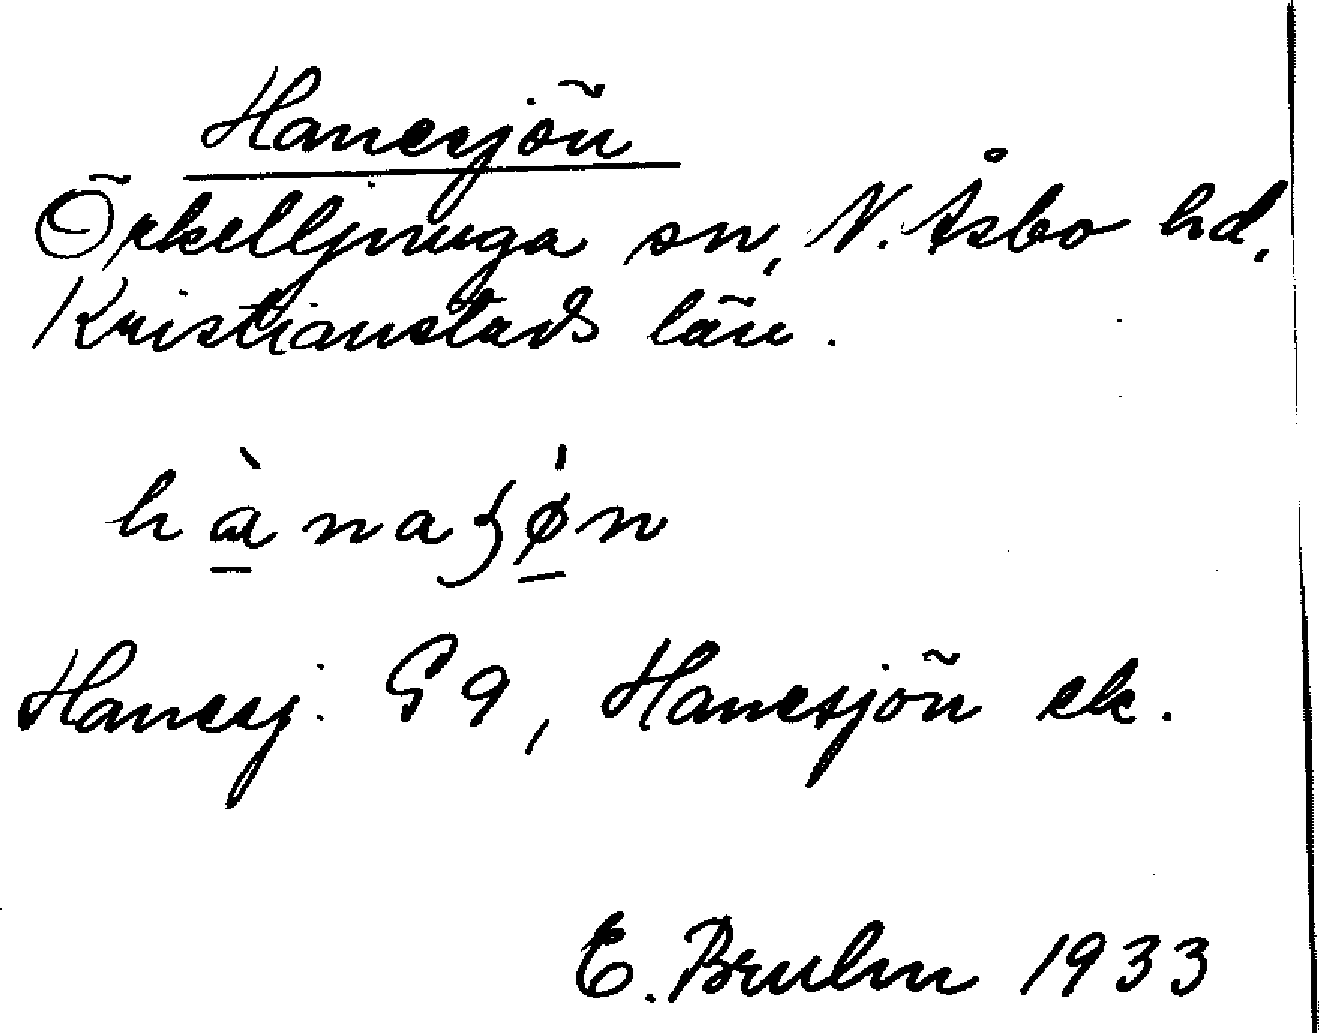 Hanesjön
Örkelljunga sn, N. Åsbo hd,
Kristianstads län.
Hanesj. G 9, Hanesjön ek.
E. Bruhn 1933